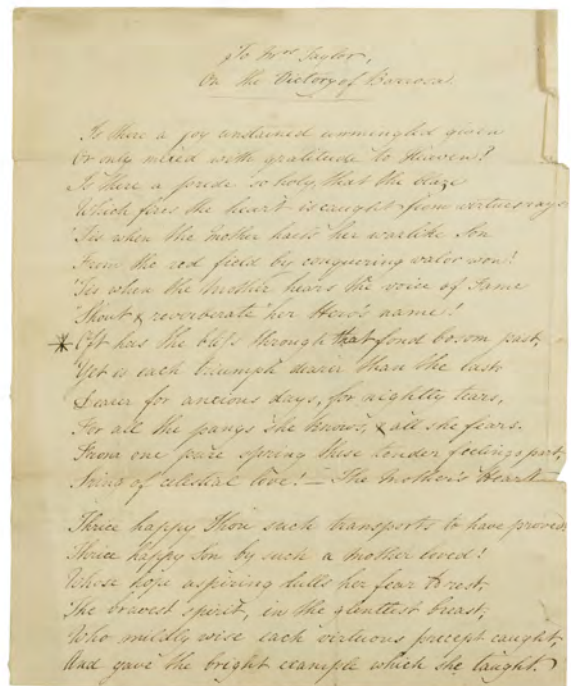 To Mrs Taylor,
On the Victory of Barrosa.
Is there a joy unstained unmingled given
Or only mixed with gratitude to Heaven?
Is there a pride so holy, that the blaze
Which fires the heart is caught from virtues rays
'Tis when the mother hails her warlike Son
From the red field by conquering valor won!
'Tis when the Mother hears the voice of Fame
Shout & reverberate her Hero's name!
* Oft has the bliss through that fond bosom past,
Yet is each triumph dearer than the last.
Dearer for anxious days, for nightly tears,
For all the pangs she knows, & all she fears.
From one pure spring these tender feelings part,
of celestial love! — The Mother's Heart —
Thrice happy Thou such transports to have proved
Thrice happy Son by such a Mother loved!
Whose hope aspiring lulls her fear to rest,
The bravest spirit, in the gentlest breast,
Who mildly wise each virtuous precept caught,
And gave the bright example which she taught.